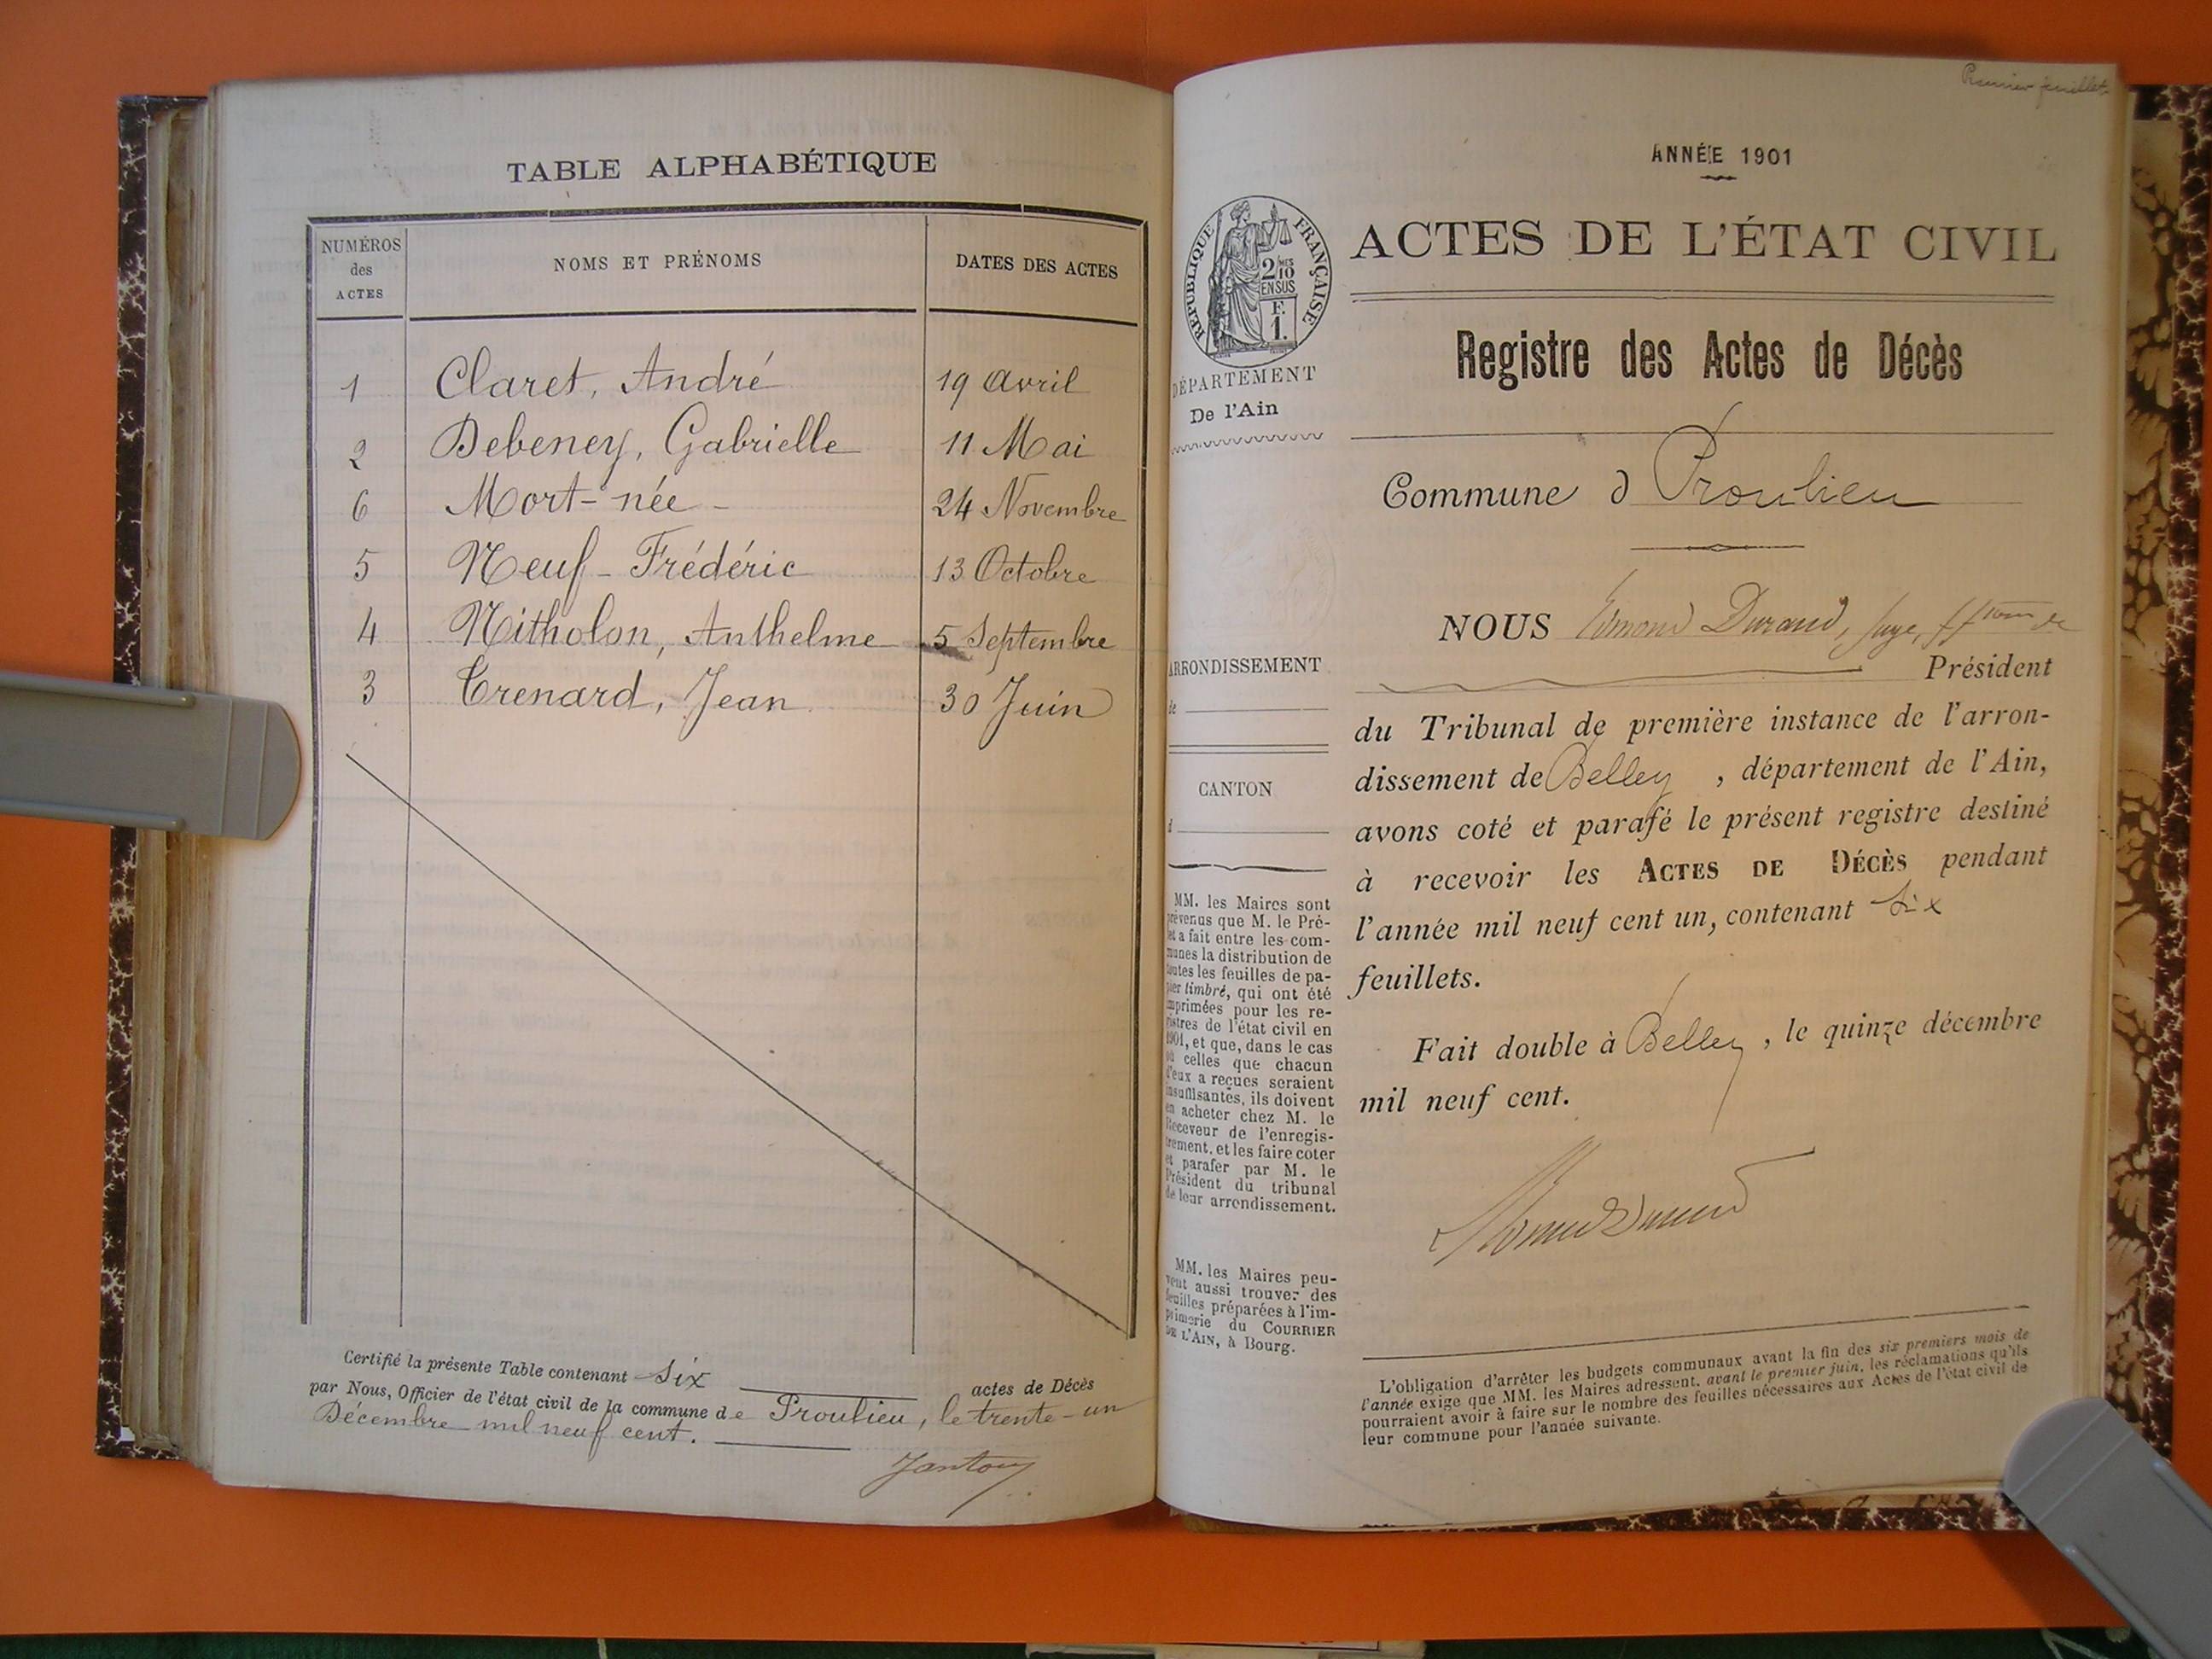 TABLE ALPHABÉTIQUE
NUMÉROS
des
ACTES
NOMS ET PRÉNOMS
DATES DES ACTES
1 Claret, André 19 Avril
2 Debeney, Gabrielle 11 Mai
6 Mort-née - 24 Novembre
5 Neuf - Frédéric 13 Octobre
4 Nitholon, Anthelme 5 Septembre
3 Trenard, Jean 30 Juin
Certifié la présente Table contenant six actes de Décès
par Nous, Officier de l'état civil de la commune de Proulieu, le trente-un
Décembre mil neuf cent.
Premier feuillet
ANNÉE 1901
RÉPUBLIQUE FRANÇAISE
2 MES
10
EN SUS
F.
1.
DÉPARTEMENT
De l'Ain
ARRONDISSEMENT
de
CANTON
d
MM. les Maires sont
prévenus que M. le Pré-
fet a fait entre les com-
munes la distribution de
toutes les feuilles de pa-
pier timbré, qui ont été
imprimées pour les re-
gistres de l'état civil en
1901, et que, dans le cas
où celles que chacun
d'eux a reçues seraient
insuffisantes, ils doivent
en acheter chez M. le
Receveur de l'enregis-
trement, et les faire coter
et parafer par M. le
Président du tribunal
de leur arrondissement.
MM. les Maires peu-
vent aussi trouver des
feuilles préparées à l'im-
primerie du COURRIER
DE L'AIN, à Bourg.
ACTES DE L'ÉTAT CIVIL
Registre des Actes de Décès
Commune d Proulieu
NOUS Edmond Durand, juge, ff
Président
du Tribunal de première instance de l'arron-
dissement de Belley, département de l'Ain,
avons coté et parafé le présent registre destiné
à recevoir les ACTES DE DÉCÈS pendant
l'année mil neuf cent un, contenant six
feuillets.
Fait double à Belley, le quinze décembre
mil neuf cent.
L'obligation d'arrêter les budgets communaux avant la fin des six premiers mois de
l'année exige que MM. les Maires adressent, avant le premier juin, les réclamations qu'ils
pourraient avoir à faire sur le nombre des feuilles nécessaires aux Actes de l'état civil de
leur commune pour l'année suivante.